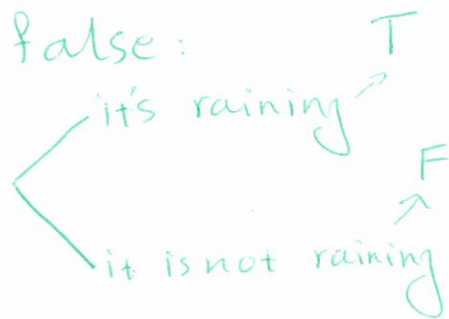 false:
T
it's raining
F
it is not raining